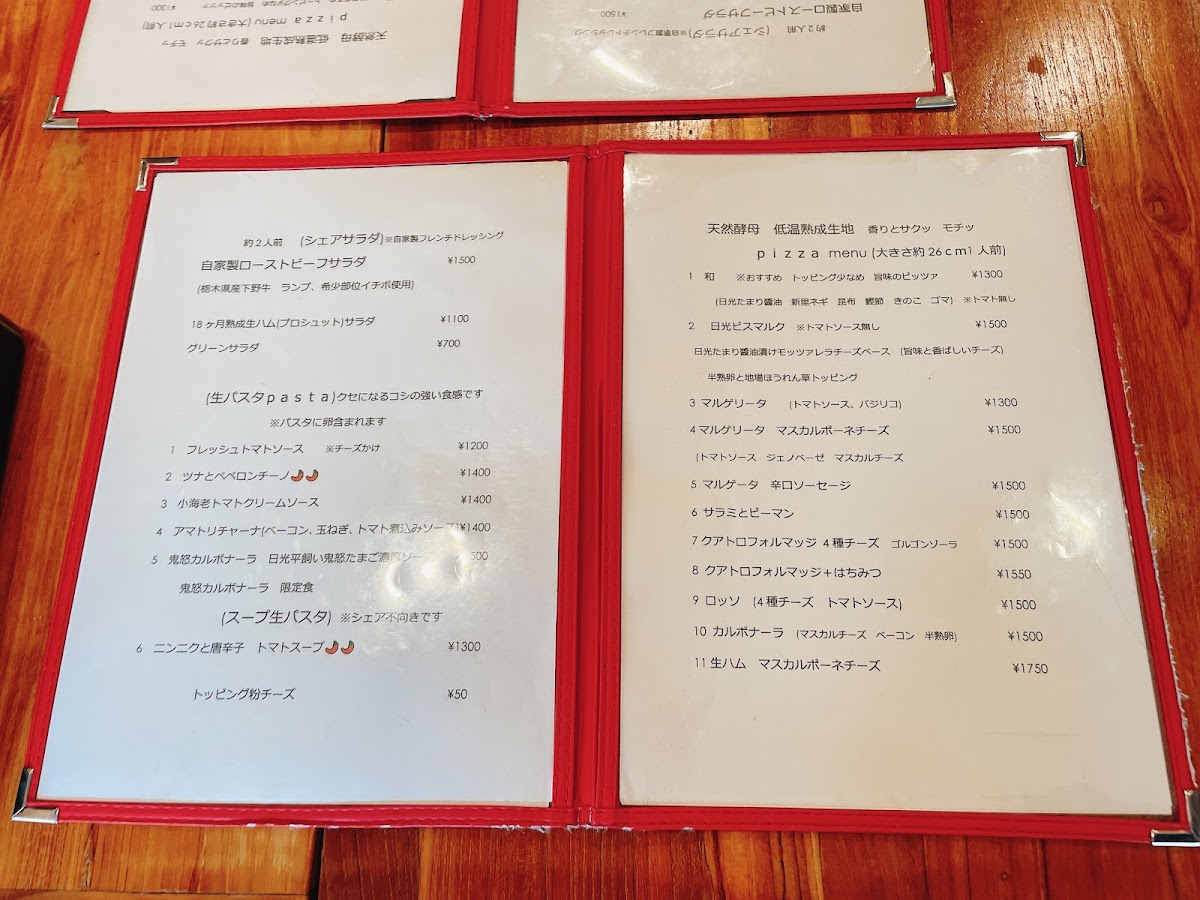 自家製ローストビーフサラダ ¥1500
約２人前 (シェアサラダ)※自家製フレンチドレッシング
天然酵母 低温熟成生地 香りとサクッ モチッ
ｐｉｚｚａ menu (大きさ約26ｃｍ1人前)
¥1300
約２人前 (シェアサラダ)※自家製フレンチドレッシング
自家製ローストビーフサラダ ¥1500
(栃木県産下野牛 ランプ、希少部位イチボ使用)
18ヶ月熟成生ハム(プロシュット)サラダ ¥1100
グリーンサラダ ¥700
(生パスタｐａｓｔａ)クセになるコシの強い食感です
※パスタに卵含まれます
1 フレッシュトマトソース ※チーズかけ ¥1200
2 ツナとペペロンチーノ🌶🌶 ¥1400
3 小海老トマトクリームソース ¥1400
4 アマトリチャーナ(ベーコン、玉ねぎ、トマト煮込みソース)¥1400
5 鬼怒カルボナーラ 日光平飼い鬼怒たまご濃厚ソー 500
鬼怒カルボナーラ 限定食
(スープ生パスタ) ※シェア不向きです
6 ニンニクと唐辛子 トマトスープ🌶🌶 ¥1300
トッピング粉チーズ ¥50
天然酵母 低温熟成生地 香りとサクッ モチッ
ｐｉｚｚａ menu (大きさ約26ｃｍ1人前)
1 和 ※おすすめ トッピング少なめ 旨味のピッツァ ¥1300
(日光たまり醤油 新里ネギ 昆布 鰹節 きのこ ゴマ) ※トマト無し
2 日光ビスマルク ※トマトソース無し ¥1500
日光たまり醬油漬けモッツァレラチーズベース (旨味と香ばしいチーズ)
半熟卵と地場ほうれん草トッピング
3 マルゲリータ (トマトソース、バジリコ) ¥1300
4 マルゲリータ マスカルポーネチーズ ¥1500
(トマトソース ジェノベーゼ マスカルチーズ
5 マルゲータ 辛口ソーセージ ¥1500
6 サラミとピーマン ¥1500
7 クアトロフォルマッジ 4種チーズ ゴルゴンゾーラ ¥1500
8 クアトロフォルマッジ＋はちみつ ¥1550
9 ロッソ (4種チーズ トマトソース) ¥1500
10 カルボナーラ (マスカルチーズ ベーコン 半熟卵) ¥1500
11 生ハム マスカルポーネチーズ ¥1750